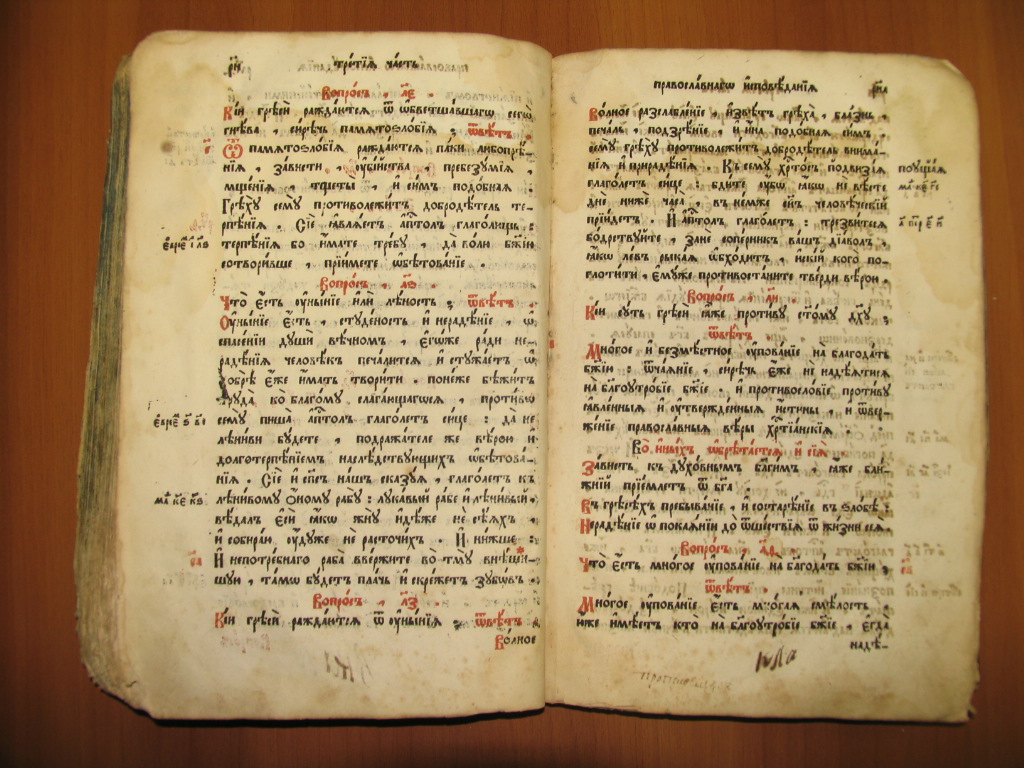 трéтїѧ чáсть
Вопрóсъ . л҃є .
Кі́и грѣсѝ раждáютсѧ ѿ ѡ҆бетшáвшагѡ сегѡ̀
гнѣ́ва , си́рѣчь памѧтоѕло́бїѧ ; ѿвѣ́тъ .
Ѿ памѧтоѕло́бїѧ раждáютсѧ пáки любопрѣ́-
нїѧ , зáвисти , ᲂу҆бі́йства , пребезꙋ́мїѧ ,
мще́нїѧ , тщеты̀ , и҆ си̑мъ подѡ́бнаѧ .
Грѣхꙋ̀ семꙋ̀ противолежи́тъ добродѣ́тель те-
рпѣ́нїѧ . Сїѐ ꙗ҆влѧ́етъ а҆пⷭ҇толъ глаго́лющь :
терпѣ́нїѧ бо и҆́мате тре́бꙋ , да во́лю бж҃їю
сотвори́вше , прїи́мете ѡ҆бѣтовáнїе .
Вопрóсъ . л҃ѕ .
Чтò є҆́сть ᲂу҆ны́нїе и҆лѝ лѣ́ность ; ѿвѣ́тъ .
Оу҆ны́нїе є҆́сть , стꙋ́деность и҆ нерадѣ́нїе , ѡ҆
спасе́нїи дꙋшѝ вѣ́чномъ , є҆гѡ́же рáди не-
радѣ́нїѧ человѣ́къ печáлитсѧ и҆ стꙋжáетъ ѡ҆
добрѣ̀ є҆́же и҆́мать твори́ти . поне́же бѣжи́тъ
трꙋдà ко благо́мꙋ , слагáющагосѧ , проти́вѡ
семꙋ̀ пи́ша а҆пⷭ҇толъ глаго́летъ си́це : да не
лѣни́ви бꙋ́дете , подражáтеле же вѣ́рою и҆
долготерпѣ́нїемъ наслѣ́дствꙋющихъ ѡ҆бѣтовá-
нїѧ . Сїѐ и҆ сп҃съ нáшъ скáзꙋѧ , глаго́летъ къ
лѣни́вомꙋ ѻ҆́номꙋ рабꙋ̀ : лꙋкáвый рáбе и҆ лѣни́вый ,
вѣ́далъ є҆сѝ ꙗ҆́кѡ жнꙋ̀ и҆дѣ́же не сѣ́ѧхъ ,
и҆ собирáю ѿнꙋ́дꙋже не расточи́хъ . И҆ ни́жше :
И҆ непотре́бнаго рабà вве́ржите во тмꙋ̀ внѣ́ш-
шꙋю , тáмѡ бꙋ́детъ плáчь и҆ скре́жетъ зꙋбѡ́въ .
Вопрóсъ . л҃з .
Кі́и грѣсѝ раждáютсѧ ѿ ᲂу҆ны́нїѧ ; ѿвѣ́тъ .
Во́лное
є҆вре́є . і҃ . л҃ѕ
є҆вре́є . ѕ҃ . в҃і
ма . к҃є . к҃ѕ
православнагѡ и҆сповѣ́данїѧ
Во́лное разслабле́нїе , и҆звѣ́тъ грѣхà , блáзнь ,
печáль , подзрѣ́нїе , и҆ и҆́на подѡ́бнаѧ си̑мъ .
семꙋ̀ грѣхꙋ̀ противолежи́тъ добродѣ́тель внимá-
нїѧ и҆ прирадѣ́нїѧ . Къ семꙋ̀ хрⷭ҇то́съ подви́зѧ
глаго́летъ си́це : бди́те ᲂу҆́бѡ ꙗ҆́кѡ не вѣ́сте
днѐ нижѐ часà , въ не́мже сн҃ъ человѣ́ческїй
прїи́детъ . И҆ а҆пⷭ҇толъ глаго́летъ : трезви́тесѧ
бо́дрствꙋйте , занѐ сопе́рникъ вáшъ дїáволъ ,
ꙗ҆́кѡ ле́въ рыкáѧ ѡ҆бхо́дитъ , и҆скі́й кого̀ по-
глоти́ти , є҆мꙋ́же противостáните тве́рди вѣ́рою .
Вопрóсъ . л҃и .
Кі́и сꙋ́ть грѣсѝ ꙗ҆̀же проти́вꙋ ст҃о́мꙋ дх҃ꙋ ;
ѿвѣ́тъ .
Мно́гое и҆ безмѣ́стное ᲂу҆повáнїе на благодáть
бж҃їю : ѿчáѧнїе , си́рѣчь є҆́же не надѣ́ѧтисѧ
на бл҃гоᲂутро́бїе бж҃їе . и҆ противосло́вїе проти́вꙋ
ꙗ҆вле́нныѧ и҆ ᲂу҆твержде́нныѧ и҆́стины , и҆ ѿве́р-
же́нїе правослáвныѧ вѣ́ры хрⷭ҇тїáнскїѧ .
Во и҆ны́хъ ѡ҆брѣтáетсѧ и҆ сїѧ̀ .
Зáвисть къ дꙋхо́внымъ бл҃ги̑мъ , ꙗ҆̀же бли́-
жнїй прїе́млетъ ѿ бг҃а .
Въ грѣсѣ́хъ пребывáнїе , и҆ состарѣ́нїе въ ѕло́бѣ ;
Нерадѣ́нїе ѡ҆ покаѧ́нїи до ѿше́ствїѧ ѿ жи́зни сеѧ̀ .
Вопрóсъ . л҃ѳ .
Чтò є҆́сть мно́гое ᲂу҆повáнїе на благодáть бж҃їю ;
ѿвѣ́тъ .
Мно́гое ᲂу҆повáнїе є҆́сть мно́гаѧ смѣ́лость .
юже и҆мѣ́етъ кто̀ на бл҃гоᲂутро́бїе бж҃їе , є҆гдà
надѣ̀-